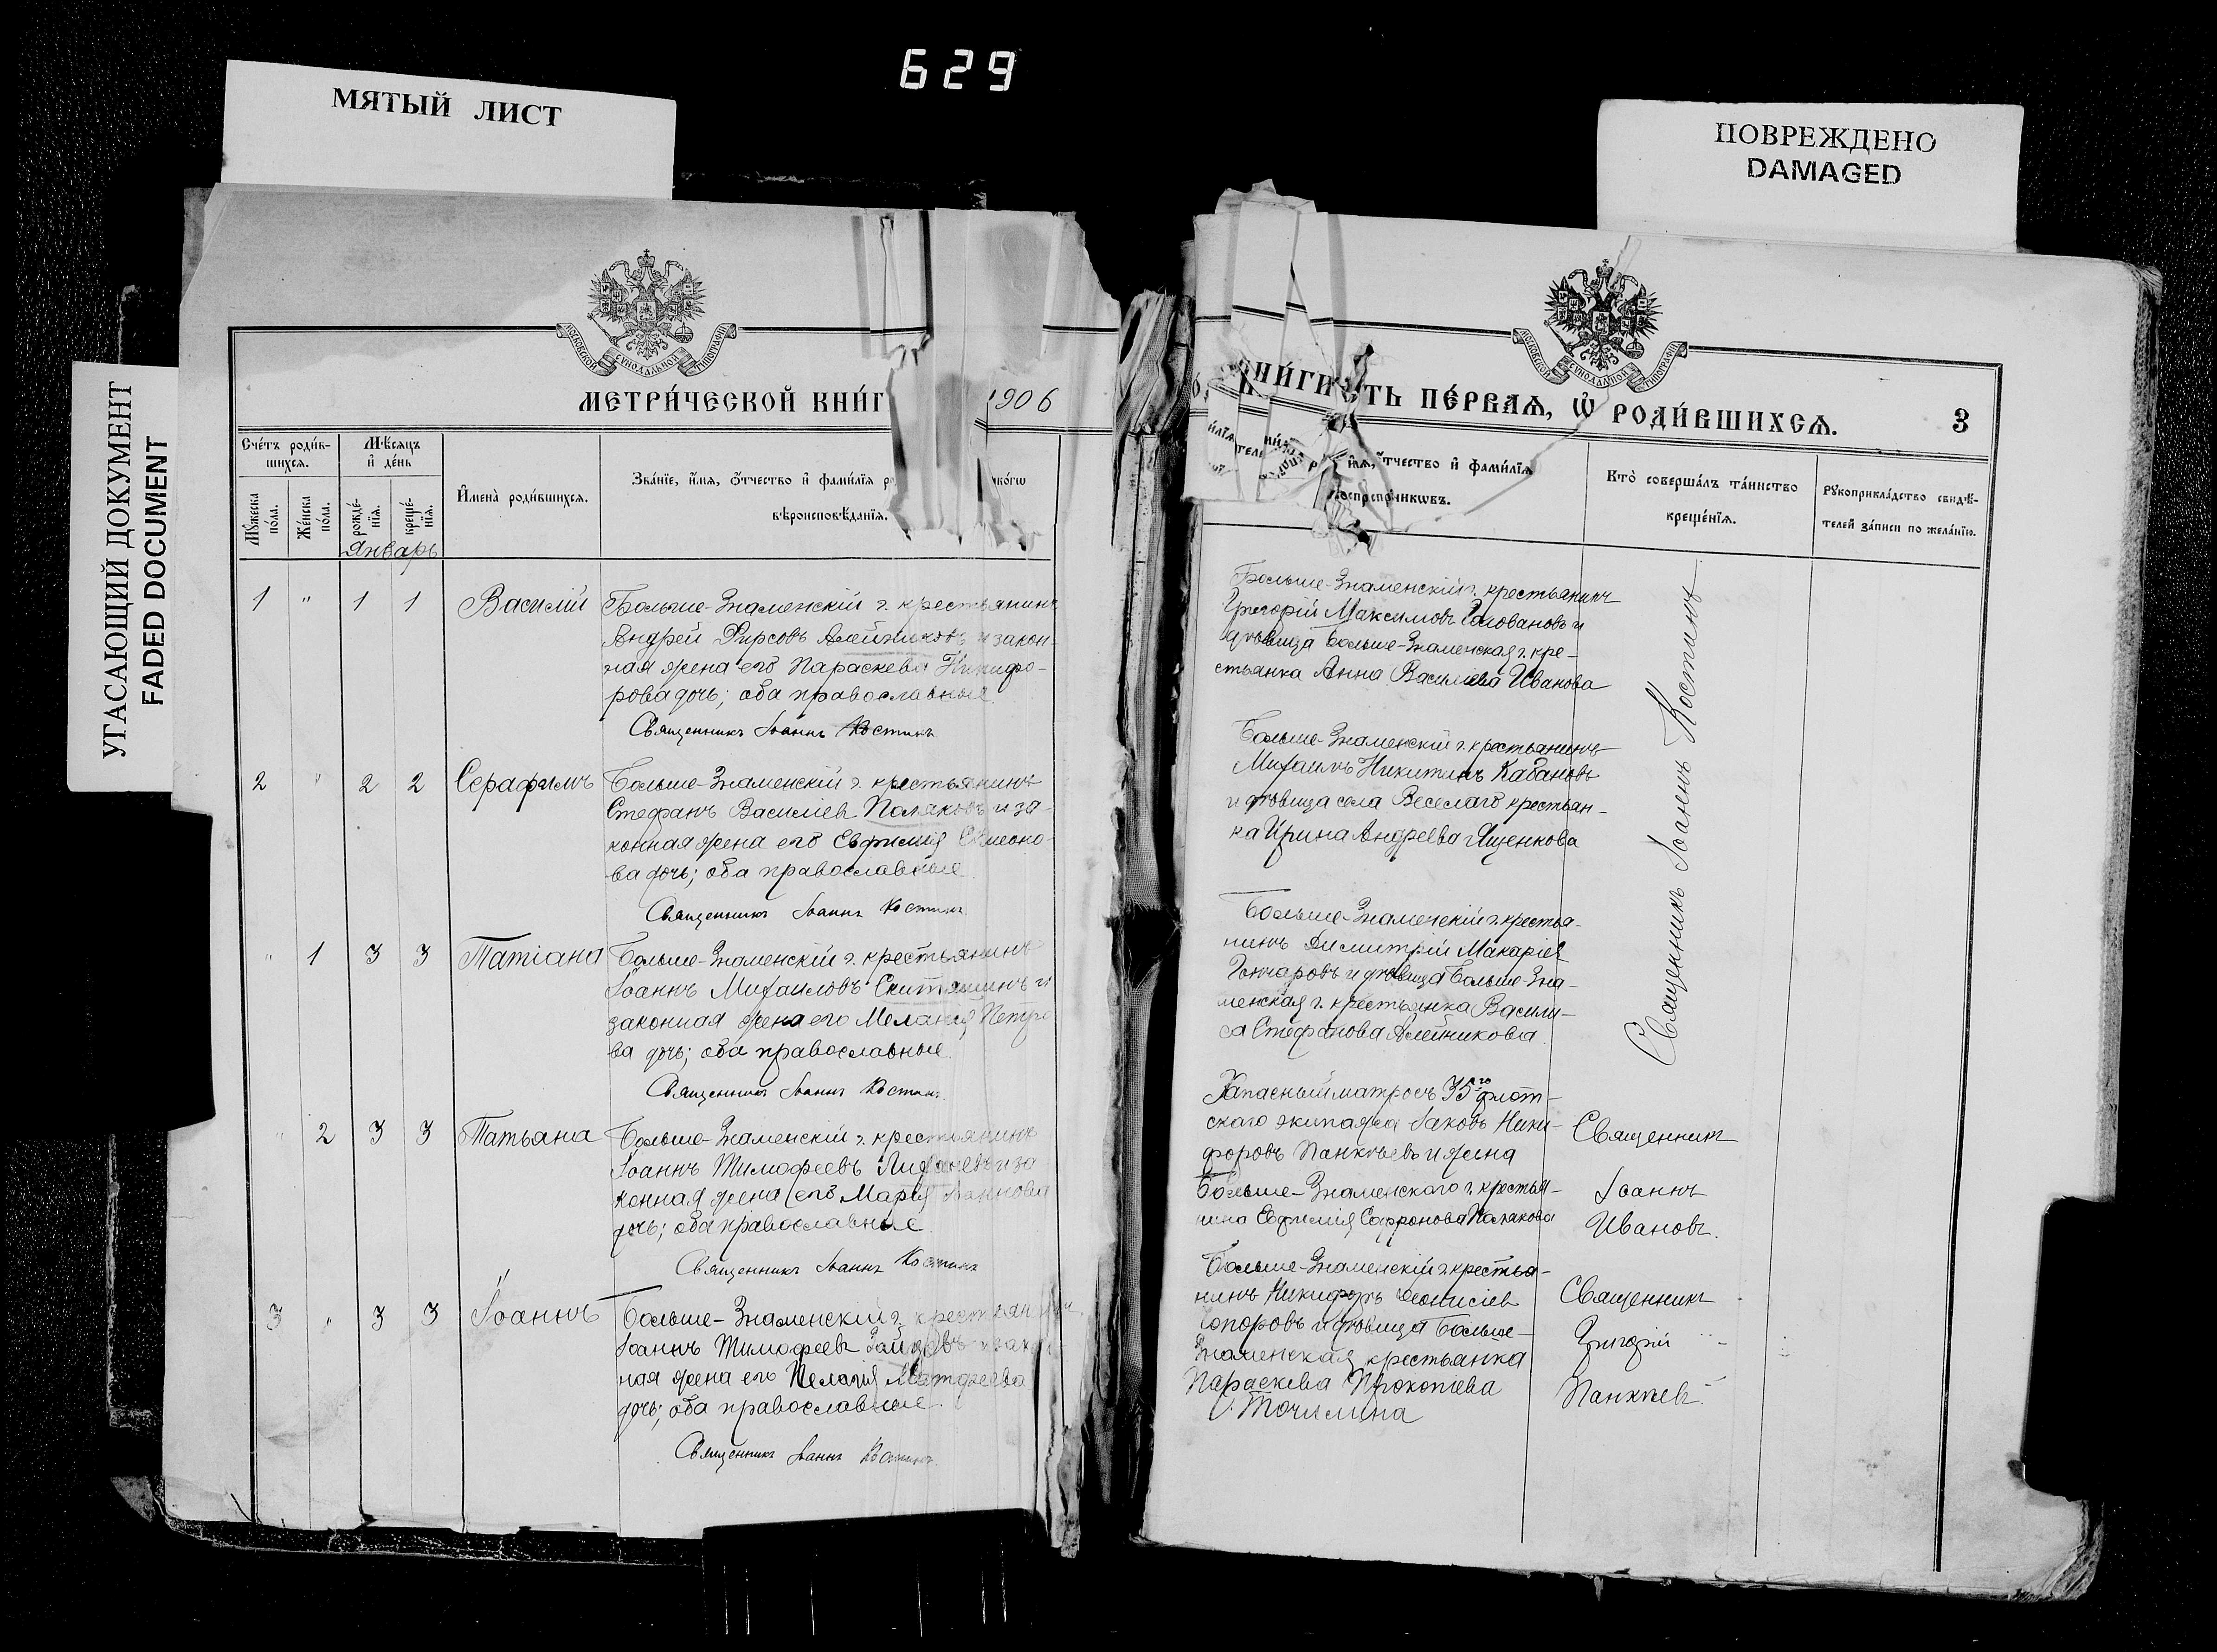 629
МЯТЫЙ ЛИСТ
ПОВРЕЖДЕНО
DAMAGED
УГАСАЮЩИЙ ДОКУМЕНТ
FADED DOCUMENT
МОСКОВСКОЙ СѴНОДАЛЬНОЙ ТИПОГРАФІИ
МЕТРИ́ЧЕСКОЙ КНИ́Г 1906
Сче́тъ роди́в-
шихсѧ.
Мꙋ́жеска по́ла.
Же́нска по́ла.
Мѣ́сѧцъ и҆ де́нь
рожде́-нїѧ.
креще́-нїѧ.
Январь
И҆мена̀ роди́вшихсѧ.
Зва́нїе, и҆́мѧ, ѻ҆́тчество и҆ фами́лїѧ
вѣроисповѣ́данїѧ.
1 " 1 1 Василій
Больше-Знаменскій г. крестьянинъ
Андрей Фирсовъ Алейниковъ и закон-
ная жена его Параскева Никифо-
рова дочь; оба православные.
Священникъ Іоаннъ Костинъ
2 " 2 2 Серафимъ
Больше-Знаменскій г. крестьянинъ
Стефанъ Василіевъ Поляковъ и за-
конная жена его Евфимія Симеоно-
ва дочь; оба православные.
Священникъ Іоаннъ Костинъ
" 1 3 3 Татіана
Больше-Знаменскій г. крестьянинъ
Іоаннъ Михаиловъ и
законная жена его Меланія Петро
ва дочь; оба православные.
Священникъ Іоаннъ Костинъ
" 2 3 3 Татьяна
Больше-Знаменскій г. крестьянинъ
Іоаннъ Тимофеевъ и за
конная жена его Марія Іоаннова
дочь; оба православные.
Священникъ Іоаннъ Костинъ
3 " 3 3 Іоаннъ
Больше-Знаменскій г. крестьянинъ
Іоаннъ Тимофеевъ
ная жена его Пелагія Матфеева
дочь; оба православные.
Священникъ Іоаннъ Костинъ
МОСКОВСКОЙ СѴНОДАЛЬНОЙ ТИПОГРАФІИ
ПЕ́РВАѦ, Ѽ РОДИ́ВШИХСѦ. 3
ѻ҆́тчество и҆ фами́лїѧ
воспрїе́мникѡвъ.
Кто̀ соверша́лъ та́инство
креще́нїѧ.
Рꙋкоприкла́дство свидѣ́-
телей за́писи по жела́нїю.
Больше-Знаменскій г. крестьянинъ
Григорій Максимовъ Головановъ и
дѣвица Больше-Знаменская г. кре-
стьянка Анна Василіева Иванова
Больше-Знаменскій г. крестьянинъ
Михаилъ Никитинъ Кабановъ
и дѣвица села Веселаго крестьян-
ка Ирина Андреева Ященкова
Больше-Знаменскій г. крестья-
нинъ Димитрій Макаріев
Гончаровъ и дѣвица Больше-Зна-
менская г. крестьянка Васили-
са Стефанова Алейникова
Священникъ Іоаннъ Костинъ
Запасный матросъ 35го флот-
скаго экипажа Іаковъ Ники-
форовъ Панкѣевъ и жена
Больше-Знаменскаго г. крестья-
нина Евфимія Сафронова Полякова
Священникъ
Іоаннъ
Ивановъ.
Больше-Знаменскій г. крестья-
нинъ Никифоръ Діонисіев
Топоровъ и дѣвица Больше-
Знаменская крестьянка
Параскева Прокопіева
Точилина
Священникъ
Григорій
Панкѣевъ.